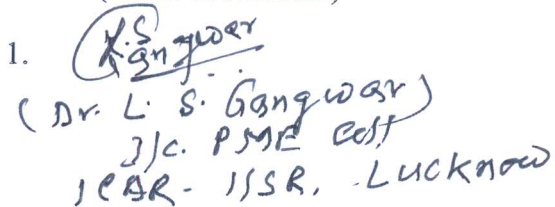 1. L.S Gangwar
(Dr. L. S. Gangwar)
I/c. PME Cell
ICAR-IISR, Lucknow